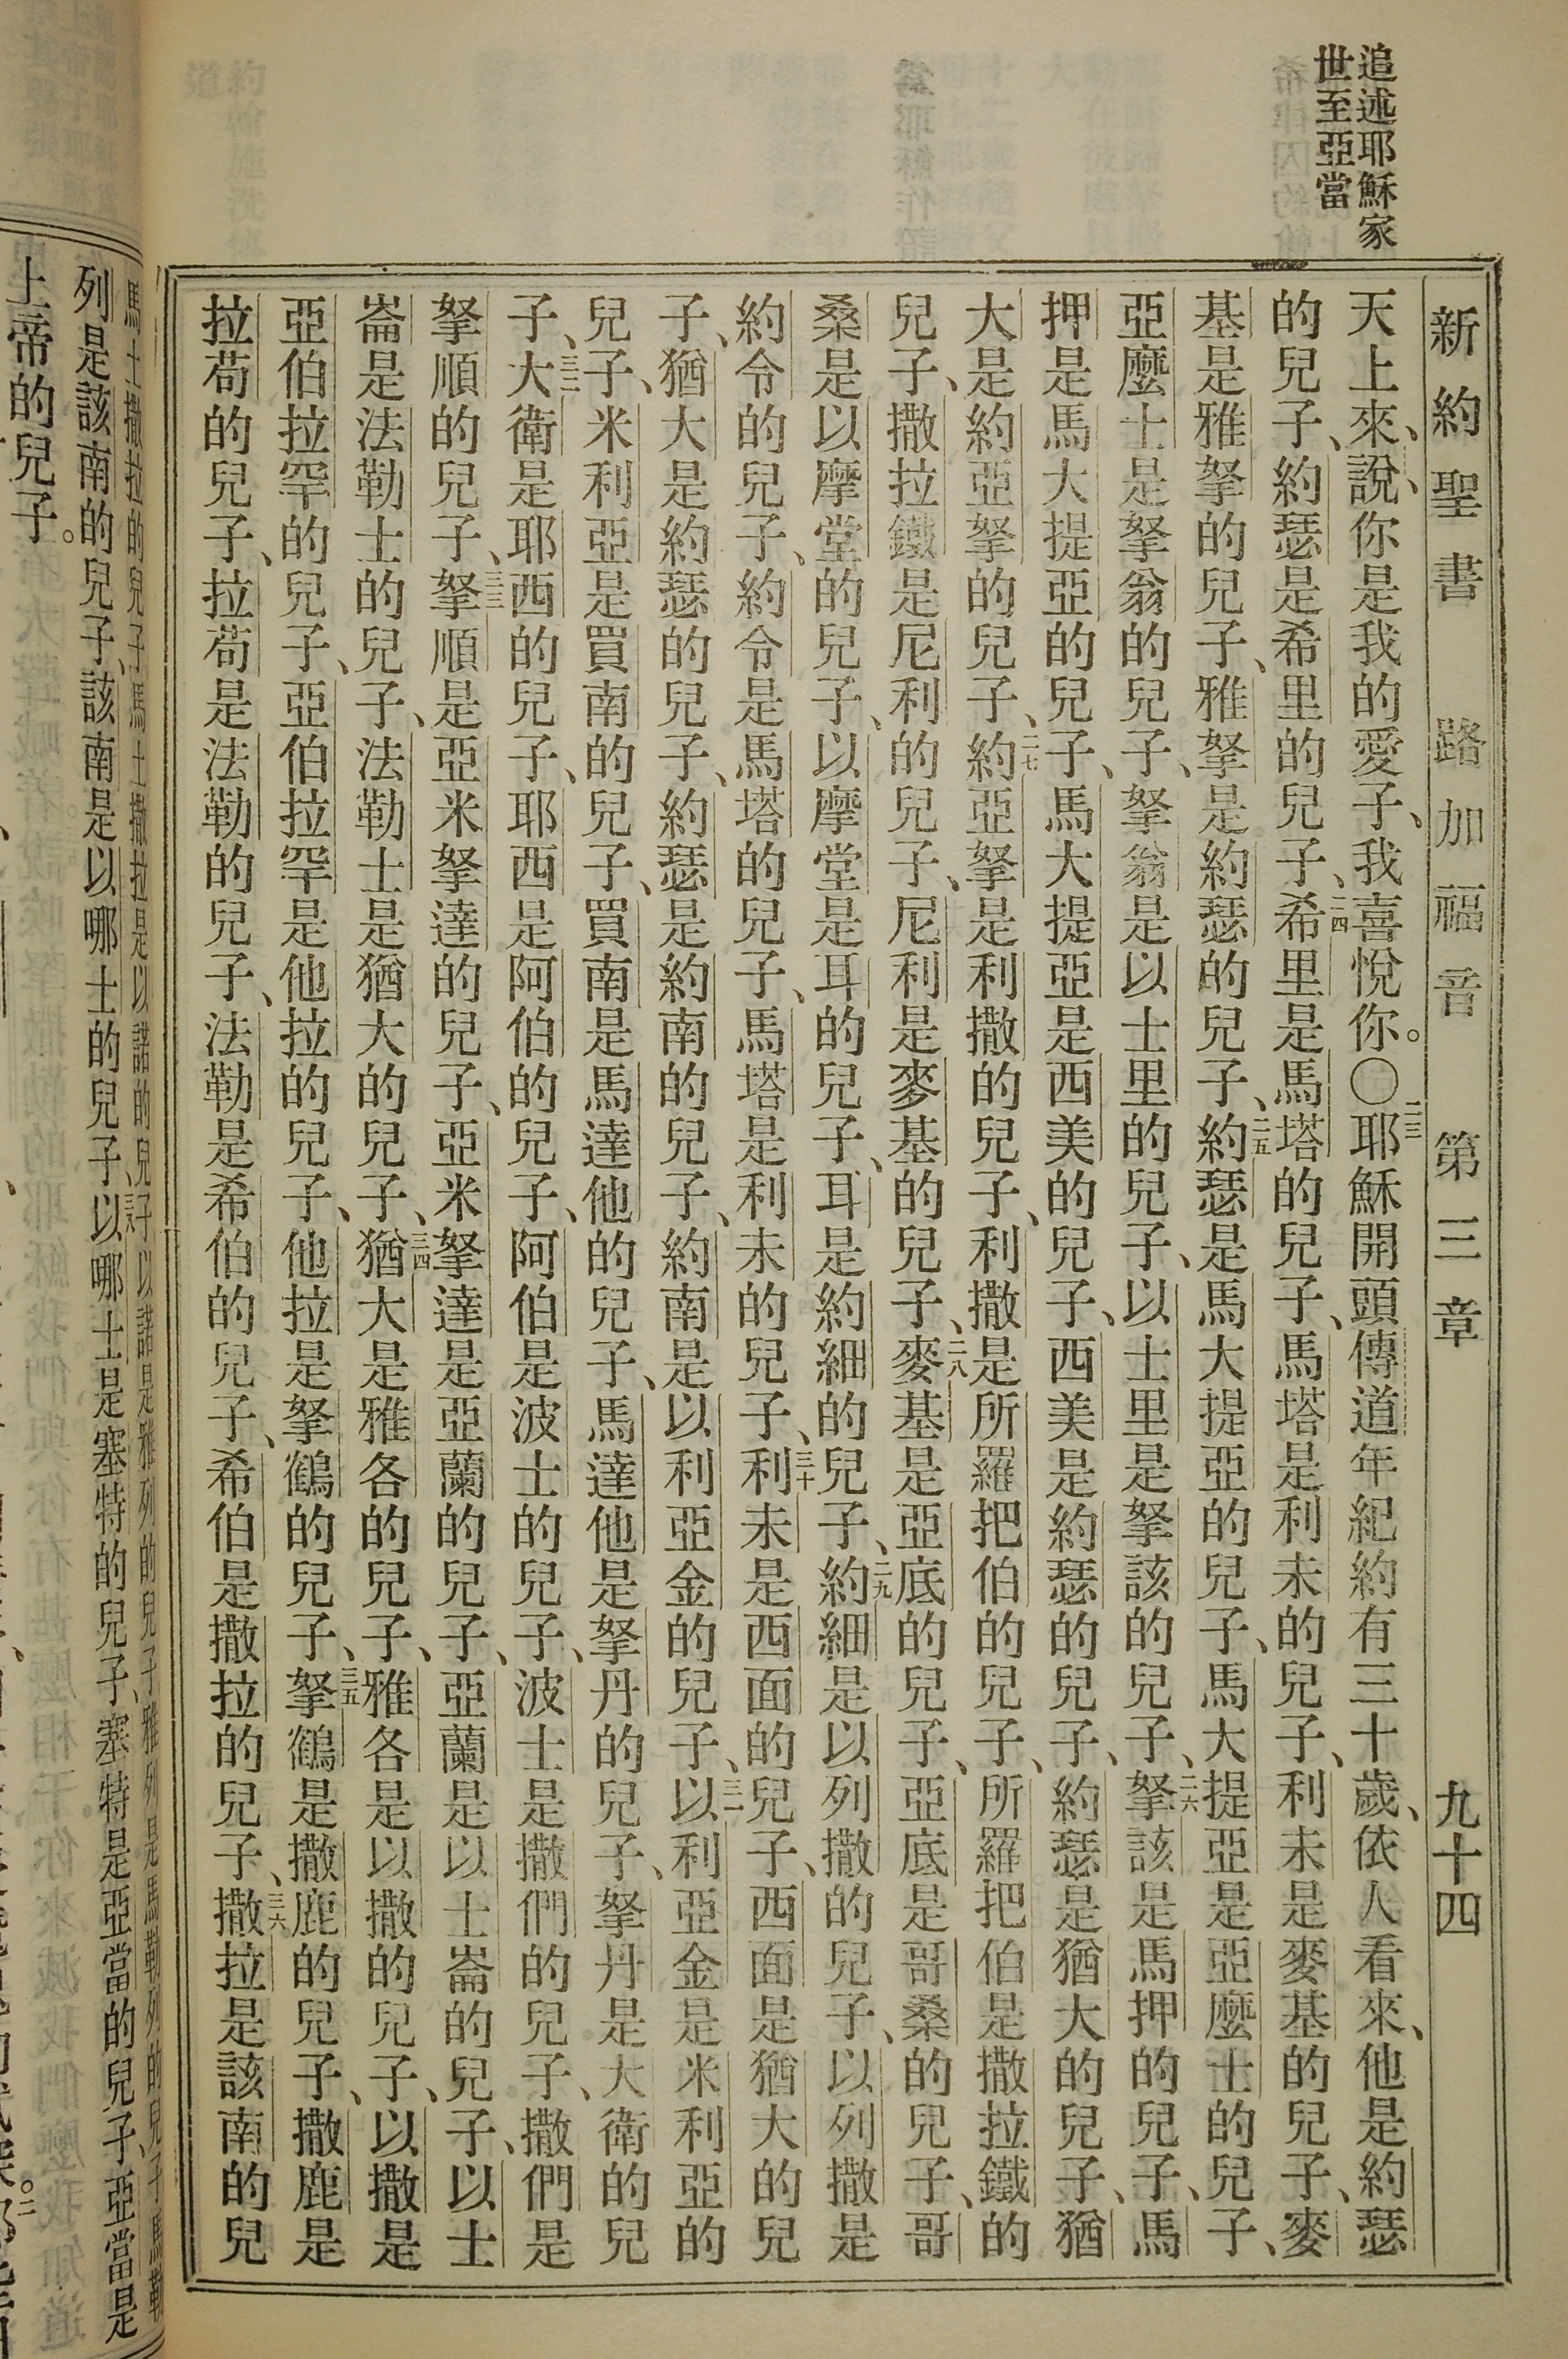 追述耶穌家
世至亞當
新約聖書 路加福音 第三章 九十四
天上來、說、你是我的愛子、我喜悅你。〇二三耶穌開頭傳道年紀約有三十歲、依人看來、他是約瑟
的兒子、約瑟是希里的兒子、二四希里是馬塔的兒子、馬塔是利未的兒子、利未是麥基的兒子、麥
基是雅拏的兒子、雅拏是約瑟的兒子、二五約瑟是馬大提亞的兒子、馬大提亞是亞麼士的兒子、
亞麼士是拏翁的兒子、拏翁是以士里的兒子、以士里是拏該的兒子、二六拏該是馬押的兒子、馬
押是馬大提亞的兒子、馬大提亞是西美的兒子、西美是約瑟的兒子、約瑟是猶大的兒子、猶
大是約亞拏的兒子、二七約亞拏是利撒的兒子、利撒是所羅把伯的兒子、所羅把伯是撒拉鐵的
兒子、撒拉鐵是尼利的兒子、尼利是麥基的兒子、二八麥基是亞底的兒子、亞底是哥桑的兒子、哥
桑是以摩堂的兒子、以摩堂是耳的兒子、耳是約細的兒子、二九約細是以列撒的兒子、以列撒是
約令的兒子、約令是馬塔的兒子、馬塔是利未的兒子、三十利未是西面的兒子、西面是猶大的兒
子、猶大是約瑟的兒子、約瑟是約南的兒子、約南是以利亞金的兒子、三一以利亞金是米利亞的
兒子、米利亞是買南的兒子、買南是馬達他的兒子、馬達他是拏丹的兒子、拏丹是大衛的兒
子、三二大衛是耶西的兒子、耶西是阿伯的兒子、阿伯是波士的兒子、波士是撒們的兒子、撒們是
拏順的兒子、三三拏順是亞米拏達的兒子、亞米拏達是亞蘭的兒子、亞蘭是以士崙的兒子、以士
崙是法勒士的兒子、法勒士是猶大的兒子、三四猶大是雅各的兒子、雅各是以撒的兒子、以撒是
亞伯拉罕的兒子、亞伯拉罕是他拉的兒子、他拉是拏鶴的兒子、三五拏鶴是撒鹿的兒子、撒鹿是
拉苟的兒子、拉苟是法勒的兒子、法勒是希伯的兒子、希伯是撒拉的兒子、三六撒拉是該南的兒
馬土撒拉的兒子、馬土撒拉是以諾的兒子、以諾是雅列的兒子、雅列是馬勒列的兒子、馬勒
列是該南的兒子、該南是以哪士的兒子、三八以哪士是塞特的兒子、塞特是亞當的兒子、亞當是
上帝的兒子。